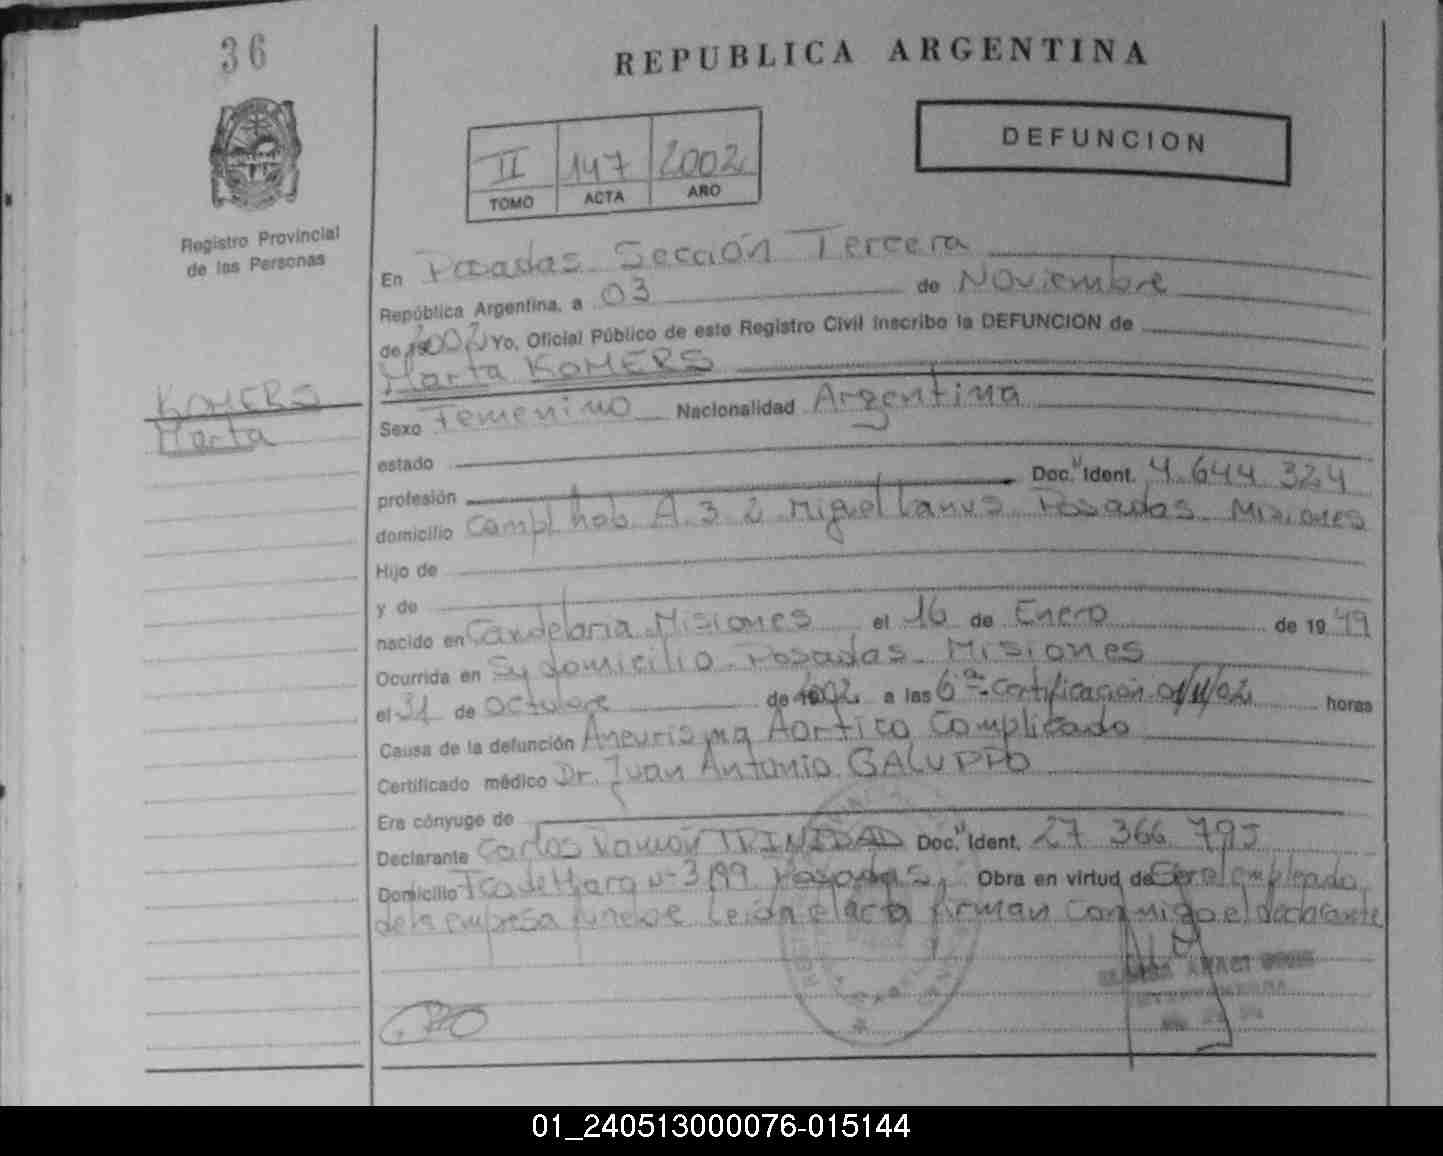 36
REPUBLICA ARGENTINA
DEFUNCION
II 147 2002
TOMO ACTA AÑO
Registro Provincial
de las Personas
En Posadas Sección Tercera
República Argentina, a 03 de Noviembre
de 2002 Yo, Oficial Público de este Registro Civil inscribo la DEFUNCION de
Marta KOMERS
KOMERS
Marta
Sexo Femenino Nacionalidad Argentina
estado
profesión Doc. Ident. 4.644.324
domicilio Compl hab A 3 2 Miguel Lanus Posadas Misiones
Hijo de
y de
nacido en Candelaria Misiones el 16 de Enero de 19 49
Ocurrida en Su domicilio Posadas Misiones
el 31 de Octubre de 2002 a las 6ª Certificación 01/11/02 horas
Causa de la defunción Aneurisma Aortico Complicado
Certificado médico Dr. Juan Antonio GALUPPO
Era cónyuge de
Declarante Carlos Ramón TRINIDAD Doc. Ident. 27 366 795
Domicilio Posadas, Obra en virtud de Ser el empleado
de la empresa funebre Leida el acta firman conmigo el declarante
01_240513000076-015144